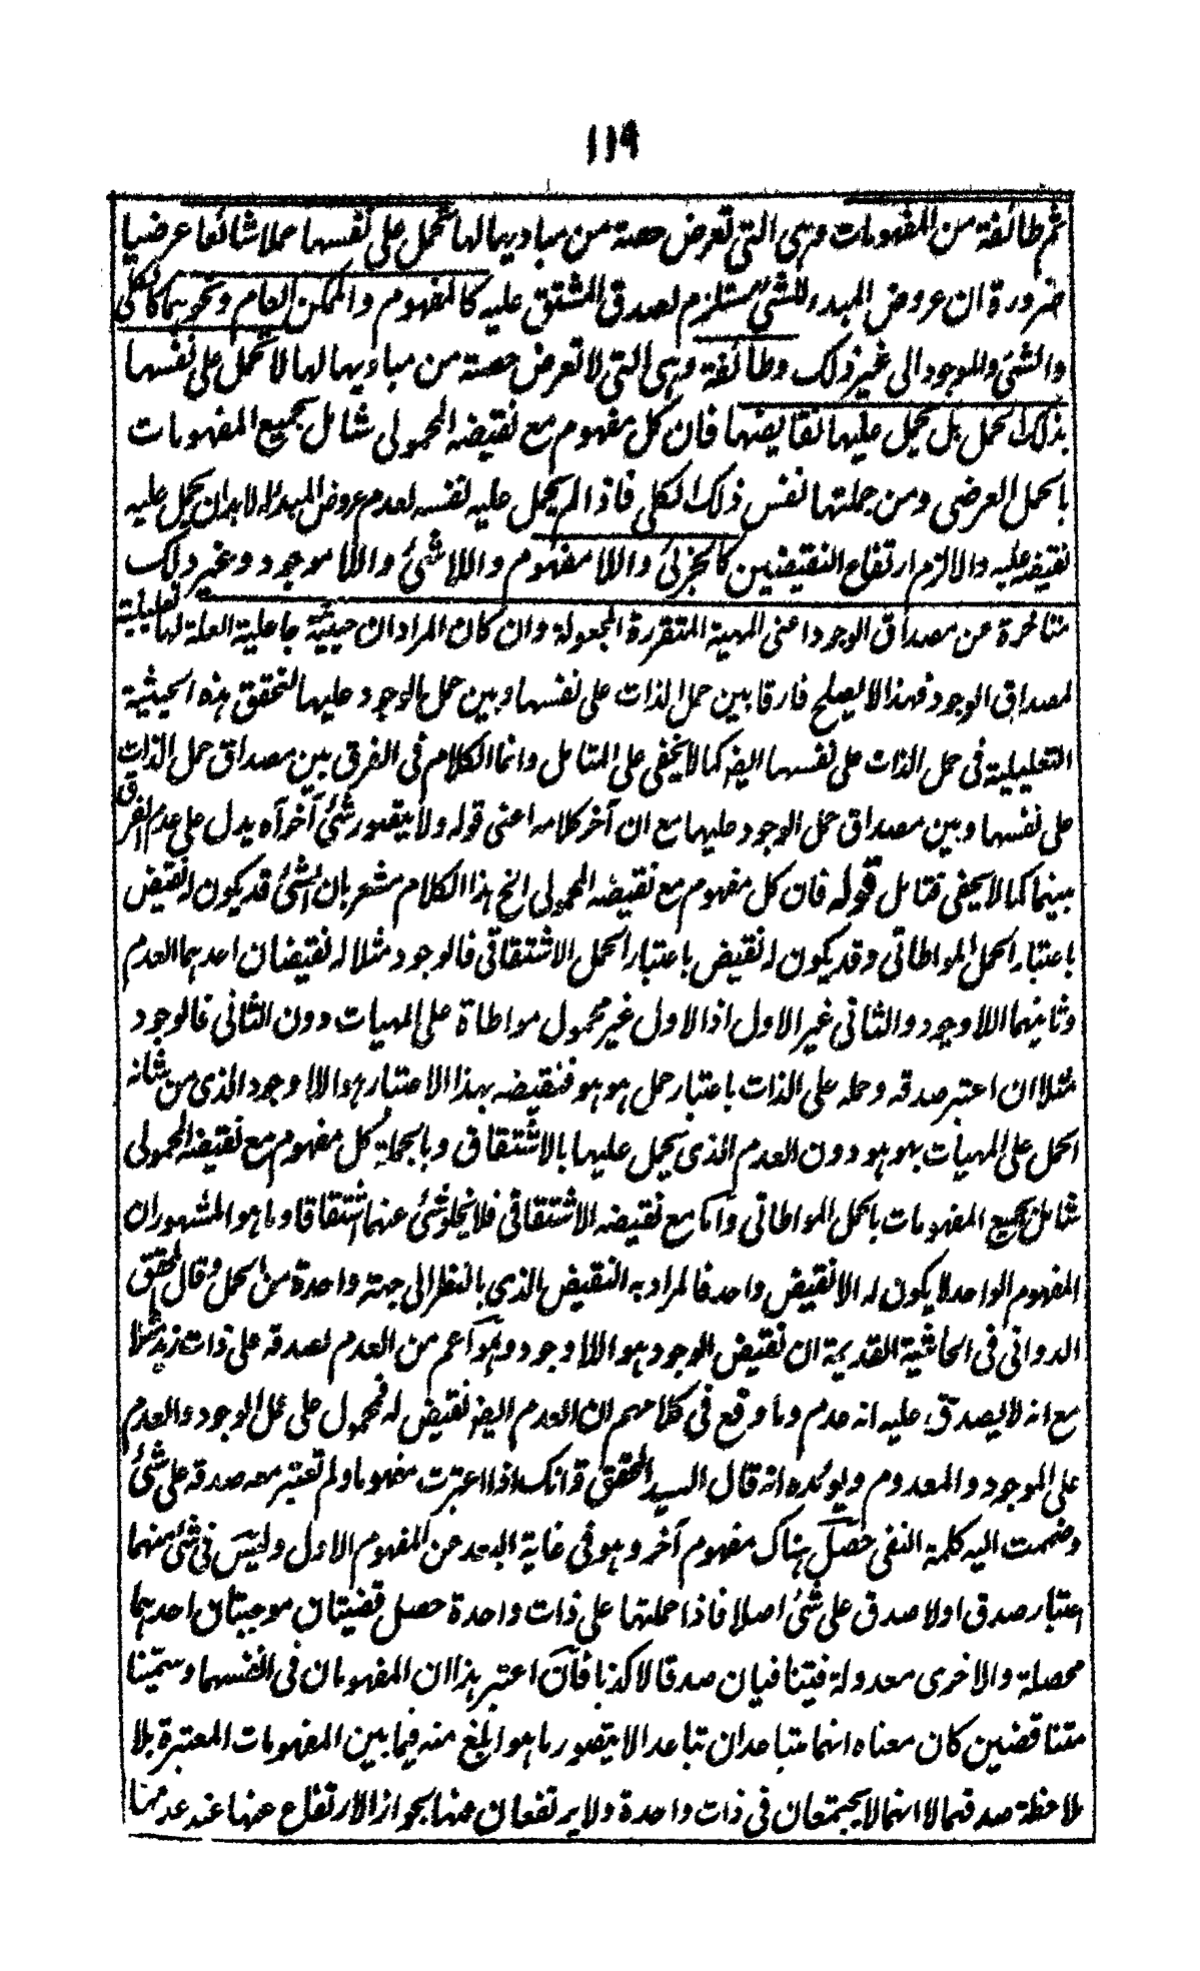 ١١٩
ثم طائفة من المفهومات وهى التى تعرض حصة من مباديها لها تحمل على نفسها حملا شائعا عرضيا
ضرورة ان عروض المبدء للشئ يستلزم لصدق المشتق عليه كالمفهوم والممكن العام ونحوهما كالكلى
والشئ والموجود الى غير ذلك وطائفة وهى التى لا تعرض حصة من مباديها لها لا تحمل على نفسها
بذلك الحمل بل يحمل عليها نقايضها فان كل مفهوم مع نقيضه المحمولى شامل لجميع المفهومات
بالحمل العرضى ومن جملتها نفس ذلك الكلى فاذا لم يحمل عليه نفسه لعدم عروض المبدء له لا بد ان يحمل عليه
نقيضه عليه والا لزم ارتفاع النقيضين كالجزئى واللا مفهوم واللا شئ واللا موجود وغير ذلك
متاخرة عن مصداق الوجود اعنى المهية المتقررة المجعولة وان كان المراد ان حيثية جاعلية العلة لها تعليلية
لمصداق الوجود فهذا لا يصلح فارقا بين حمل الذات على نفسها وبين حمل الوجود عليها لتحقق هذه الحيثية
التعليلية فى حمل الذات على نفسها ايضا كما لا يخفى على المتامل وانما الكلام فى الفرق بين مصداق حمل الذات
على نفسها وبين مصداق حمل الوجود عليها مع ان آخر كلامه اعنى قوله ولا يتصور شئ آخر آه يدل على عدم الفرق
بينهما كما لا يخفى فتامل قوله فان كل مفهوم مع نقيضه المحمولى الخ هذا الكلام مشعر بان الشئ قد يكون له نقيض
باعتبار الحمل المواطاتى وقد يكون له نقيض باعتبار الحمل الاشتقاقى فالوجود مثلا له نقيضان احدهما العدم
وثانيهما اللاوجود والثانى غير الاول اذ الاول غير محمول مواطاة على المهيات دون الثانى فالوجود
مثلا ان اعتبر صدقه وحمله على الذات باعتبار حمل هو هو فنقيضه بهذا الاعتبار هو اللاوجود الذى من شانه
الحمل على المهيات بهو هو دون العدم الذى يحمل عليها بالاشتقاق وبالجملة كل مفهوم مع نقيضه المحمولى
شامل لجميع المفهومات بالحمل المواطاتى واما مع نقيضه الاشتقاقى فلا يخلو شئ عنهما اشتقاقا وما هو المشهور ان
المفهوم الواحد لا يكون له الا نقيض واحد فالمراد به النقيض الذى بالنظر الى جهة واحدة من الحمل وقال المحقق
الدوانى فى الحاشية القديمة ان نقيض الوجود هو اللاوجود وهو اعم من العدم لصدقه على ذات زيد مثلا
مع انه لا يصدق عليه انه عدم وما وقع فى كلامهم ان العدم ايضا نقيض له فمحمول على حمل الوجود والعدم
على الموجود والمعدوم ويؤيده انه قال السيد المحقق قد انك اذا اعتبرت مفهوما ولم تعتبر معه صدقه على شئ
وضممت اليه كلمة النفى حصل هناك مفهوم آخر وهو فى غاية البعد عن المفهوم الاول وليس فى شئ منهما
اعتبار صدق او لا صدق على شئ اصلا فاذا حملتها على ذات واحدة حصل قضيتان موجبتان احدهما
محصلة والاخرى معدولة فيتنافيان صدقا لا كذبا فان اعتبر هذا ان المفهومان فى انفسهما وسمينا
متناقضين كان معناه انهما متباعدان تباعدا لا يتصور ما هو ابلغ منه فيما بين المفهومات المعتبرة بلا
ملاحظة صدقهما لا انهما لا يجتمعان فى ذات واحدة ولا يرتفعان عنها لجواز الارتفاع عنها عند عدمها